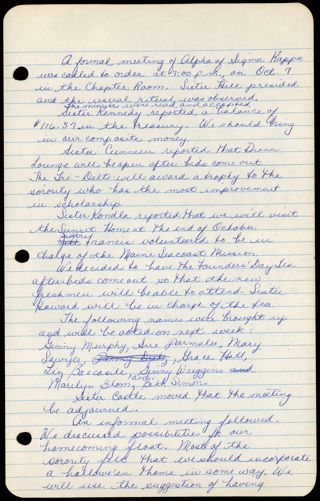 A formal meeting of Alpha of Sigma Kappa
was called to order at 7:00 p.m. on Oct. 7
in the Chapter Room. Sister Hill presided
and the usual ritual was observed.
The minutes were read and accepted.
Sister Kennedy reported a balance of
$116.57 in the treasury. We should bring
in our composite money.
Sister Cunneen reported that Dunn
Lounge will be open after bids come out.
The Tri-Delts will award a trophy to the
sorority who has the most improvement
in scholarship.
Sister Kondla reported that we will visit
the Sunset Home at the end of October.
Francis volunteered to be in
charge of the Maine Seacoast Mission.
We decided to have the Founders' Day Tea
after bids come out, so that the new
freshmen will be able to attend. Sister
Howard will be in charge of the tea.
The following names were brought up
and will be voted on next week:
Ginny Murphy, Sue Parmalee, Mary
Sawyer, Grace Hall,
Liz Boscaile, Ginny Wiggins and
Marilyn Blom, and Beth Simons.
Sister Castle moved that the meeting
be adjourned.
An informal meeting followed.
We discussed possibilities for our
homecoming float. Most of the
sorority felt that we should incorporate
a halloween theme in some way. We
will use the suggestion of having